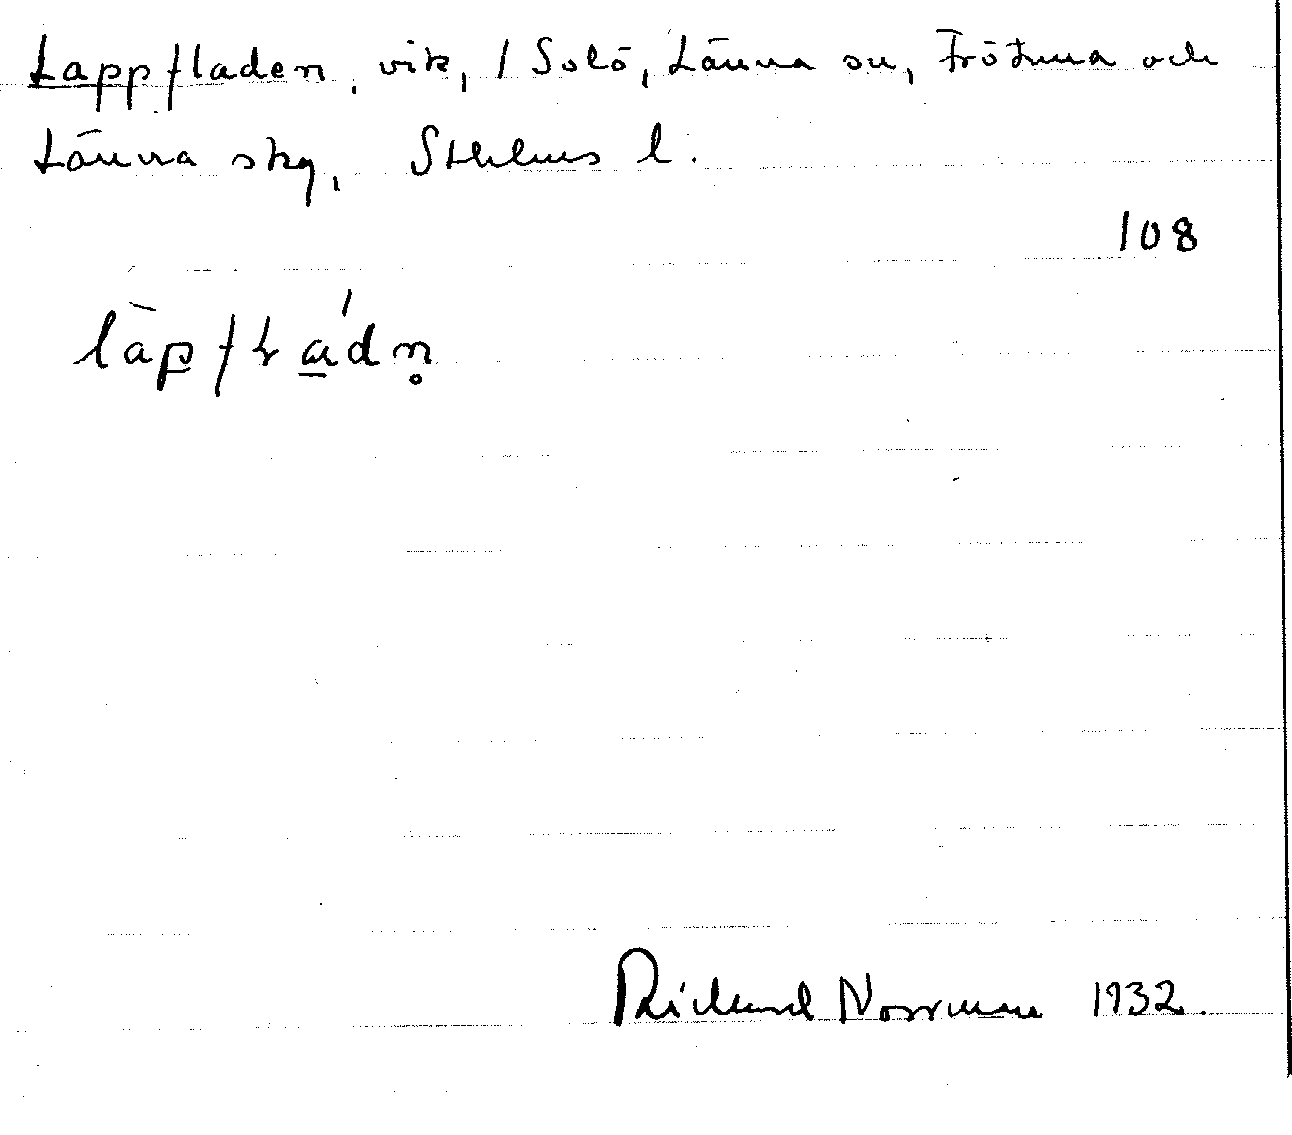 Lappfladen, vik, 1 Solö, Länna sn, Frötuna och
Länna skg, Sthlms l.
108
làpfɫá̱dn̥
Rickard Norrman 1932.